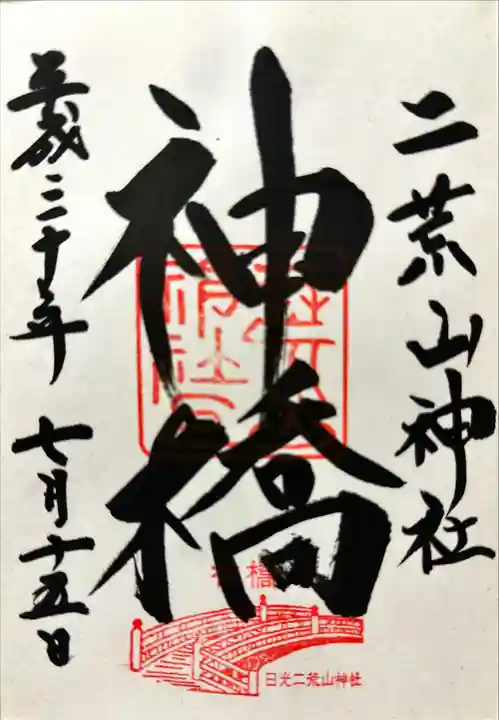 二荒山神社
神橋
平成三十年 七月十五日
橋
日光二荒山神社